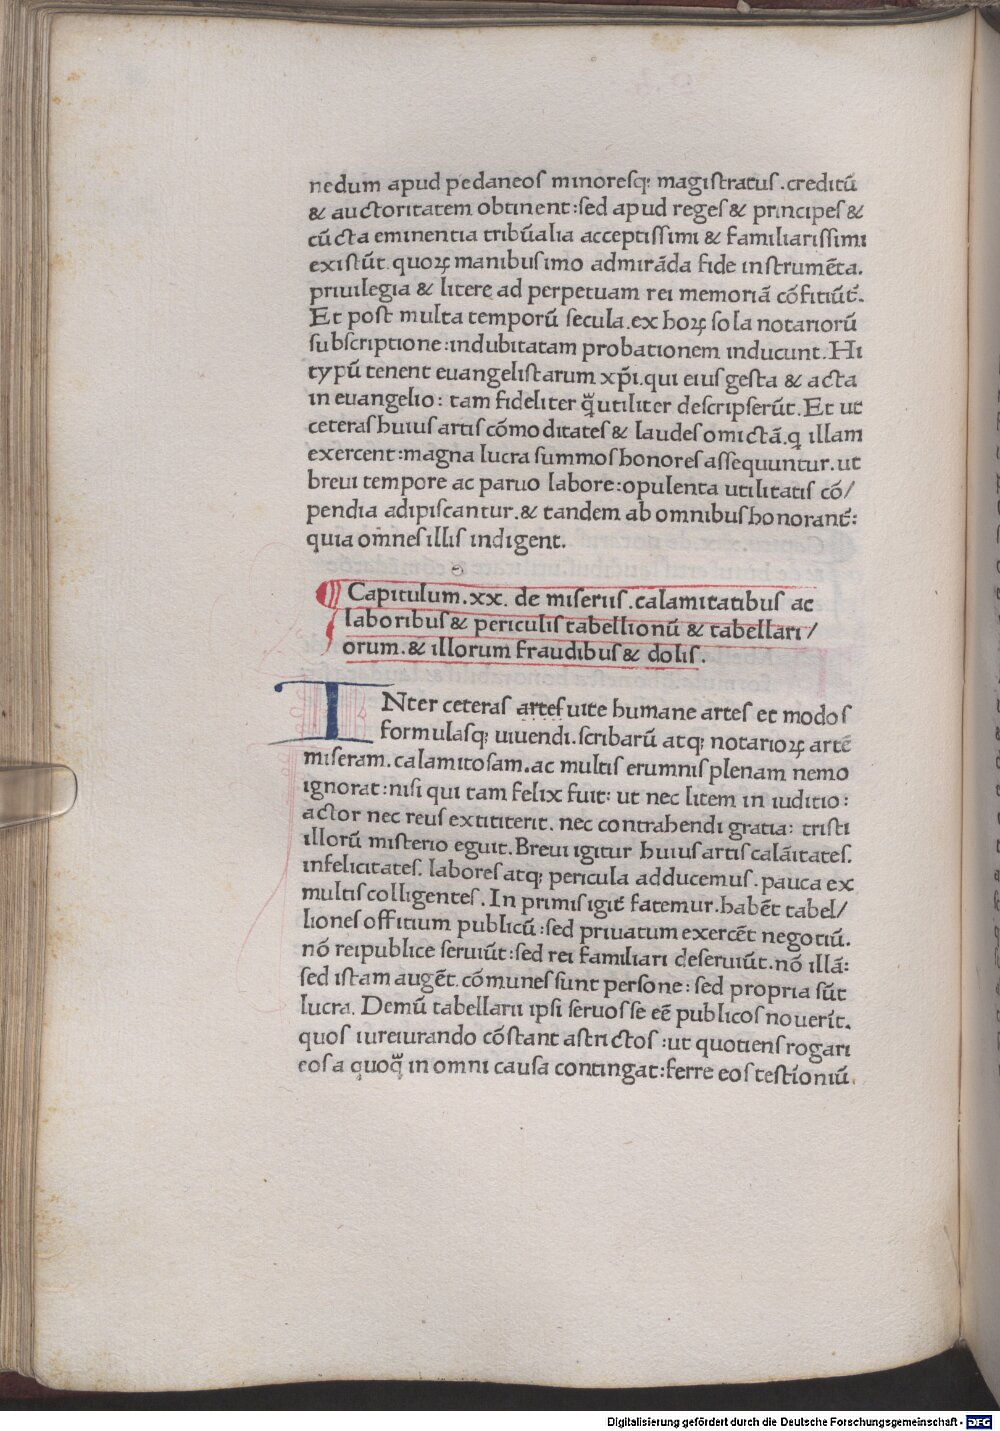 nedum apud pedaneoſ minoreſqꝫ magiſtratuſ.creditū
& auctoritatem obtinent:ſed apud regeſ & principeſ &
cūcta eminentia tribūalia acceptiſſimi & familiariſſimi
exiſtūt.quoꝝ manibuſ imo admirāda fide inſtrumēta.
priuilegia & litere ad perpetuam rei memoriā cōfitiūt̄.
Et poſt multa temporū ſecula.ex hoꝝ ſola notariorū
ſubſcriptione:indubitatam probationem inducunt.Hi
typū tenent euangeliſtarum xp̄i.qui eiuſ geſta & acta
in euangelio: tam fideliter q̄̈ utiliter deſcripſerūt.Et ut
ceteraſ huiuſ artiſ cōmoditateſ & laudeſ omictā.q̨ illam
exercent:magna lucra ſummoſ honoreſ aſſequuntur.ut
breui tempore ac paruo labore:opulenta utilitatiſ cō/
pendia adipiſcantur.& tandem ab omnibuſ honorant̄:
quia om̄eſ illiſ indigent.
Capitulum.xx. de miſeriiſ.calamitatibuſ ac
laboribuſ & periculiſ tabellionū & tabellari/
orum.& illorum fraudibuſ & doliſ.
INter ceteraſ arteſ uite humane arteſ et modoſ
formulaſqꝫ uiuendi.ſcribarū atqꝫ notarioꝝ artē
miſeram.calamitoſam.ac multiſ erumniſ plenam nemo
ignorat:niſi qui tam felix fuit: ut nec litem in iuditio:
actor nec reuſ extititerit. nec contrahendi gratia: triſti
illorū miſterio eguit.Breui igitur huiuſ artiſ calāitateſ.
infelicitateſ. laboreſ atqꝫ pericula adducemuſ.pauca ex
multiſ colligenteſ.In primiſ igit̄ fatemur.habēt tabel/
lioneſ offitium publicū:ſed priuatum exercēt negotiū.
nō reipublice ſeruiūt:ſed rei familiari deſeruiūt.nō illā:
ſed iſtam augēt.cōmuneſ ſunt perſone:ſed propria ſūt
lucra. Demū tabellarii ipſi ſeruoſ ſe eē publicoſ nouerīt.
quoſ iureiurando cōſtant aſtrictoſ:ut quotienſ rogari
eoſ a quoq̄̈ in omni cauſa contingat:ferre eoſ teſtīoniū.
Digitalisierung gefördert durch die Deutsche Forschungsgemeinschaft - DFG